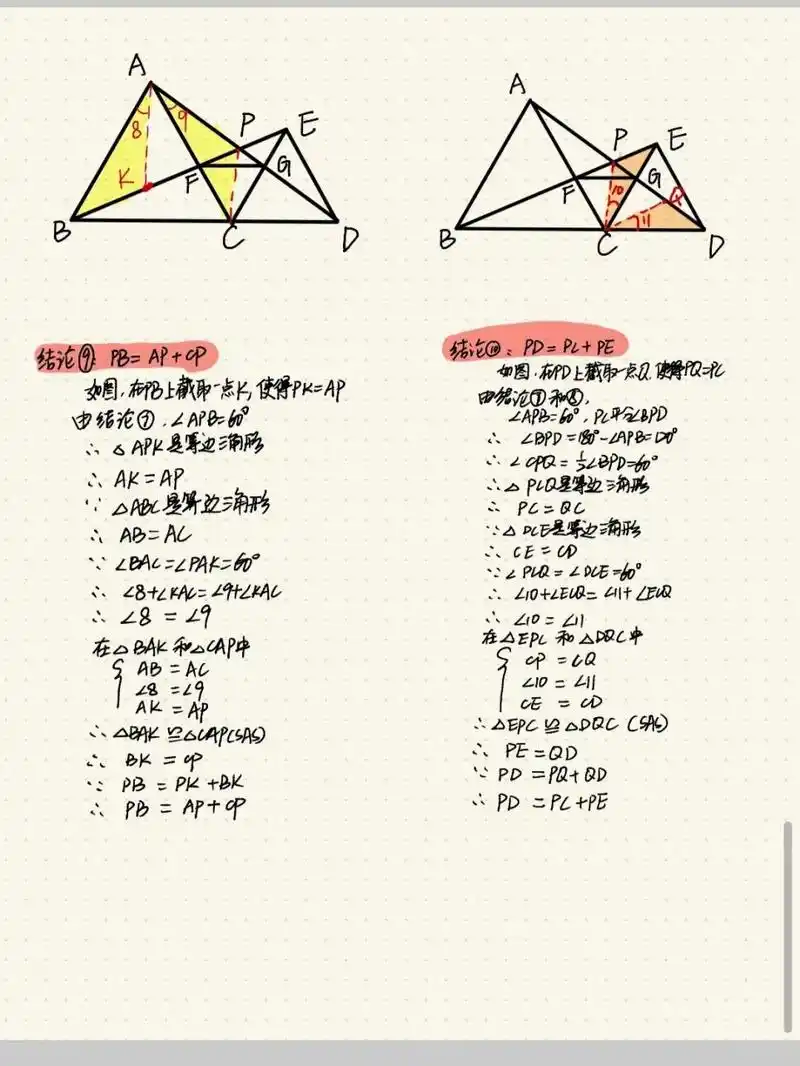 A
8
9
P
E
K
F
G
B
C
D
A
P
E
F
G
10
Q
11
B
C
D
结论⑨: PB = AP + CP
如图,在PB上截取一点K,使得PK=AP
由结论⑦,∠APB=60°
∴ △APK是等边三角形
∴ AK = AP
∵ △ABC是等边三角形
∴ AB = AC
∵ ∠BAC=∠PAK=60°
∴ ∠8+∠KAC=∠9+∠KAC
∴ ∠8 = ∠9
在△BAK和△CAP中
AB = AC
∠8 = ∠9
AK = AP
∴ △BAK ≌ △CAP(SAS)
∴ BK = CP
∵ PB = PK + BK
∴ PB = AP + CP
结论⑩: PD = PC + PE
如图,在PD上截取一点Q,使得PQ=PC
由结论⑦和⑧,
∠APB=60°,PC平分∠BPD
∴ ∠BPD=180°-∠APB=120°
∴ ∠CPQ=½∠BPD=60°
∴ △PCQ是等边三角形
∴ PC = QC
∵ △DCE是等边三角形
∴ CE = CD
∵ ∠PCQ = ∠DCE=60°
∴ ∠10+∠ECQ=∠11+∠ECQ
∴ ∠10 = ∠11
在△EPC和△DQC中
CP = CQ
∠10 = ∠11
CE = CD
∴ △EPC ≌ △DQC (SAS)
∴ PE = QD
∵ PD = PQ + QD
∴ PD = PC + PE